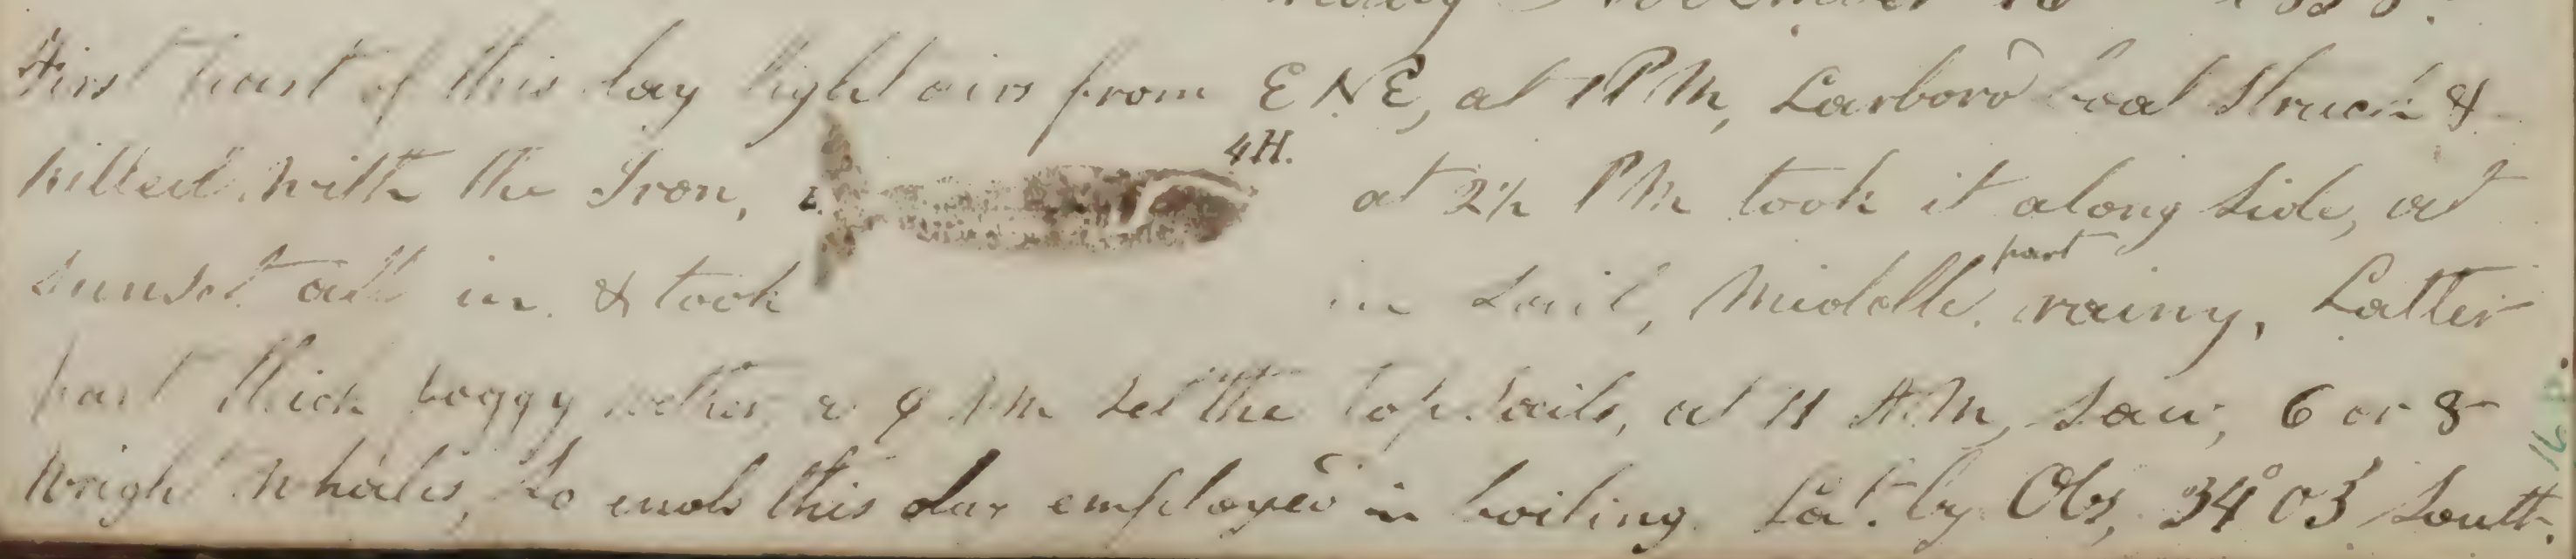 November 16 1838.
First part of this day light airs from ENE, at 1 PM, Larbord boat struck &
4H.
killed with the Iron, at 2½ PM took it along side, at
sunset all in & took in sail, Middle part rainy, Latter
part thick foggy wether, 9 AM set the top sails, at 11 AM, saw, 6 or 8
wright whales, so ends this day employed in boiling. Lat. by Obs, 34° 03' South.